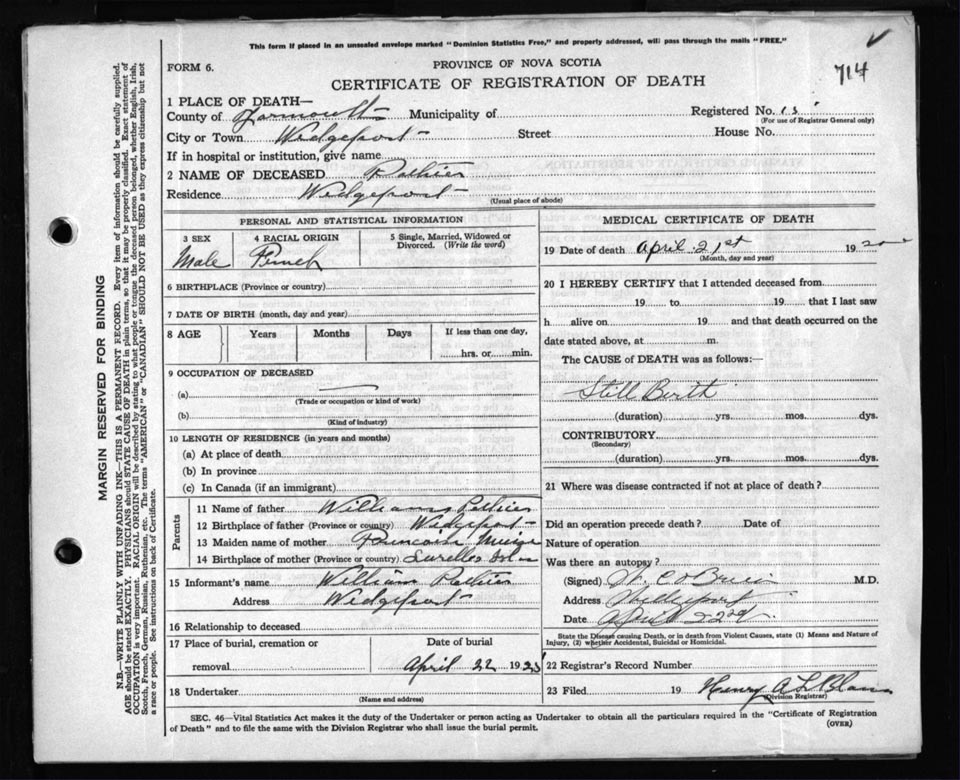 This form if placed in an unsealed envelope marked "Dominion Statistics Free," and properly addressed, will pass through the mails "FREE."
714
FORM 6.
PROVINCE OF NOVA SCOTIA
CERTIFICATE OF REGISTRATION OF DEATH
1 PLACE OF DEATH—
County of Yarmouth Municipality of Registered No.
(For use of Registrar General only)
City or Town Wedgeport Street House No.
If in hospital or institution, give name
2 NAME OF DECEASED Pothier
Residence Wedgeport
(Usual place of abode)
PERSONAL AND STATISTICAL INFORMATION
3 SEX 4 RACIAL ORIGIN 5 Single, Married, Widowed or Divorced. (Write the word)
Male French
6 BIRTHPLACE (Province or country)
7 DATE OF BIRTH (month, day and year)
8 AGE Years Months Days If less than one day,
hrs. or min.
9 OCCUPATION OF DECEASED
(a)
(Trade or occupation or kind of work)
(b)
(Kind of industry)
10 LENGTH OF RESIDENCE (in years and months)
(a) At place of death
(b) In province
(c) In Canada (if an immigrant)
Parents
11 Name of father William Pothier
12 Birthplace of father (Province or country) Wedgeport
13 Maiden name of mother
14 Birthplace of mother (Province or country)
15 Informant's name William Pothier
Address Wedgeport
16 Relationship to deceased
17 Place of burial, cremation or Date of burial
removal April 22 19
18 Undertaker
(Name and address)
MEDICAL CERTIFICATE OF DEATH
19 Date of death April 21st 19
(Month, day and year)
20 I HEREBY CERTIFY that I attended deceased from
19 to 19 that I last saw
h alive on 19 and that death occurred on the
date stated above, at m.
The CAUSE of DEATH was as follows:—
Still Birth
(duration) yrs. mos. dys.
CONTRIBUTORY
(Secondary)
(duration) yrs. mos. dys.
21 Where was disease contracted if not at place of death?
Did an operation precede death? Date of
Nature of operation
Was there an autopsy?
(Signed) O'Brien M.D.
Address Wedgeport
Date April 22nd
State the Disease causing Death, or in death from Violent Causes, state (1) Means and Nature of
Injury, (2) whether Accidental, Suicidal or Homicidal.
22 Registrar's Record Number
23 Filed 19 Henry A. LeBlanc
(Division Registrar)
SEC. 46—Vital Statistics Act makes it the duty of the Undertaker or person acting as Undertaker to obtain all the particulars required in the "Certificate of Registration
of Death" and to file the same with the Division Registrar who shall issue the burial permit.
(OVER)
MARGIN RESERVED FOR BINDING
N.B.—WRITE PLAINLY WITH UNFADING INK—THIS IS A PERMANENT RECORD. Every item of information should be carefully supplied.
AGE should be stated EXACTLY. PHYSICIANS should STATE CAUSE OF DEATH in plain terms, so that it may be properly classified. Exact statement of
OCCUPATION is very important. RACIAL ORIGIN will be described by stating to what people or tongue the deceased person belonged, whether English, Irish,
Scotch, French, German, Russian, Ruthenian, etc. The terms "AMERICAN" or "CANADIAN" SHOULD NOT BE USED as they express citizenship but not
a race or people. See instructions on back of Certificate.